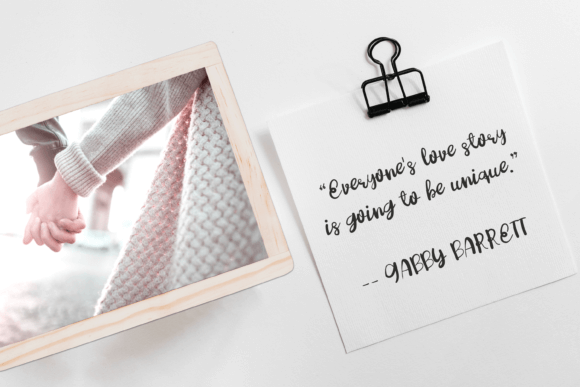 “Everyone's love story
is going to be unique.”
-- GABBY BARRETT